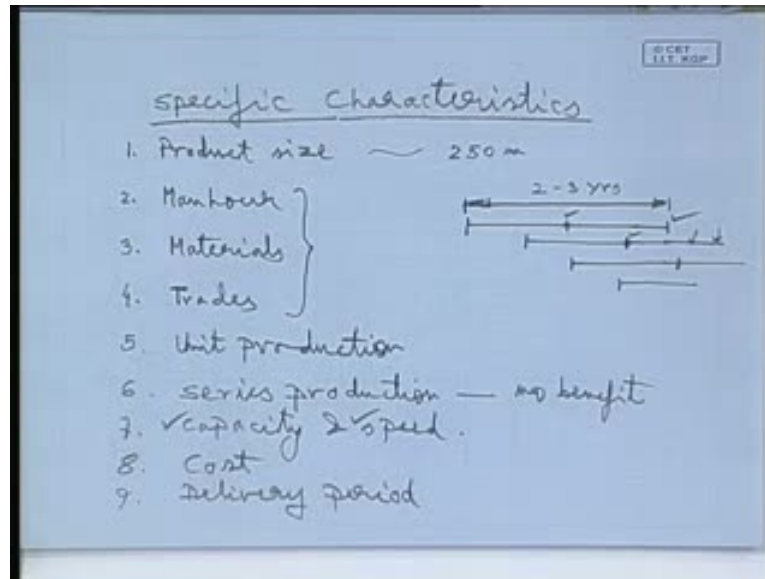 © CET
I.I.T. KGP
Specific Characteristics
1. Product size ~ 250 m
2. Manhour
3. Materials
4. Trades
2 - 3 yrs
5. Unit production
6. series production — no benefit
7. ✓capacity & ✓speed.
8. Cost
9. Delivery period